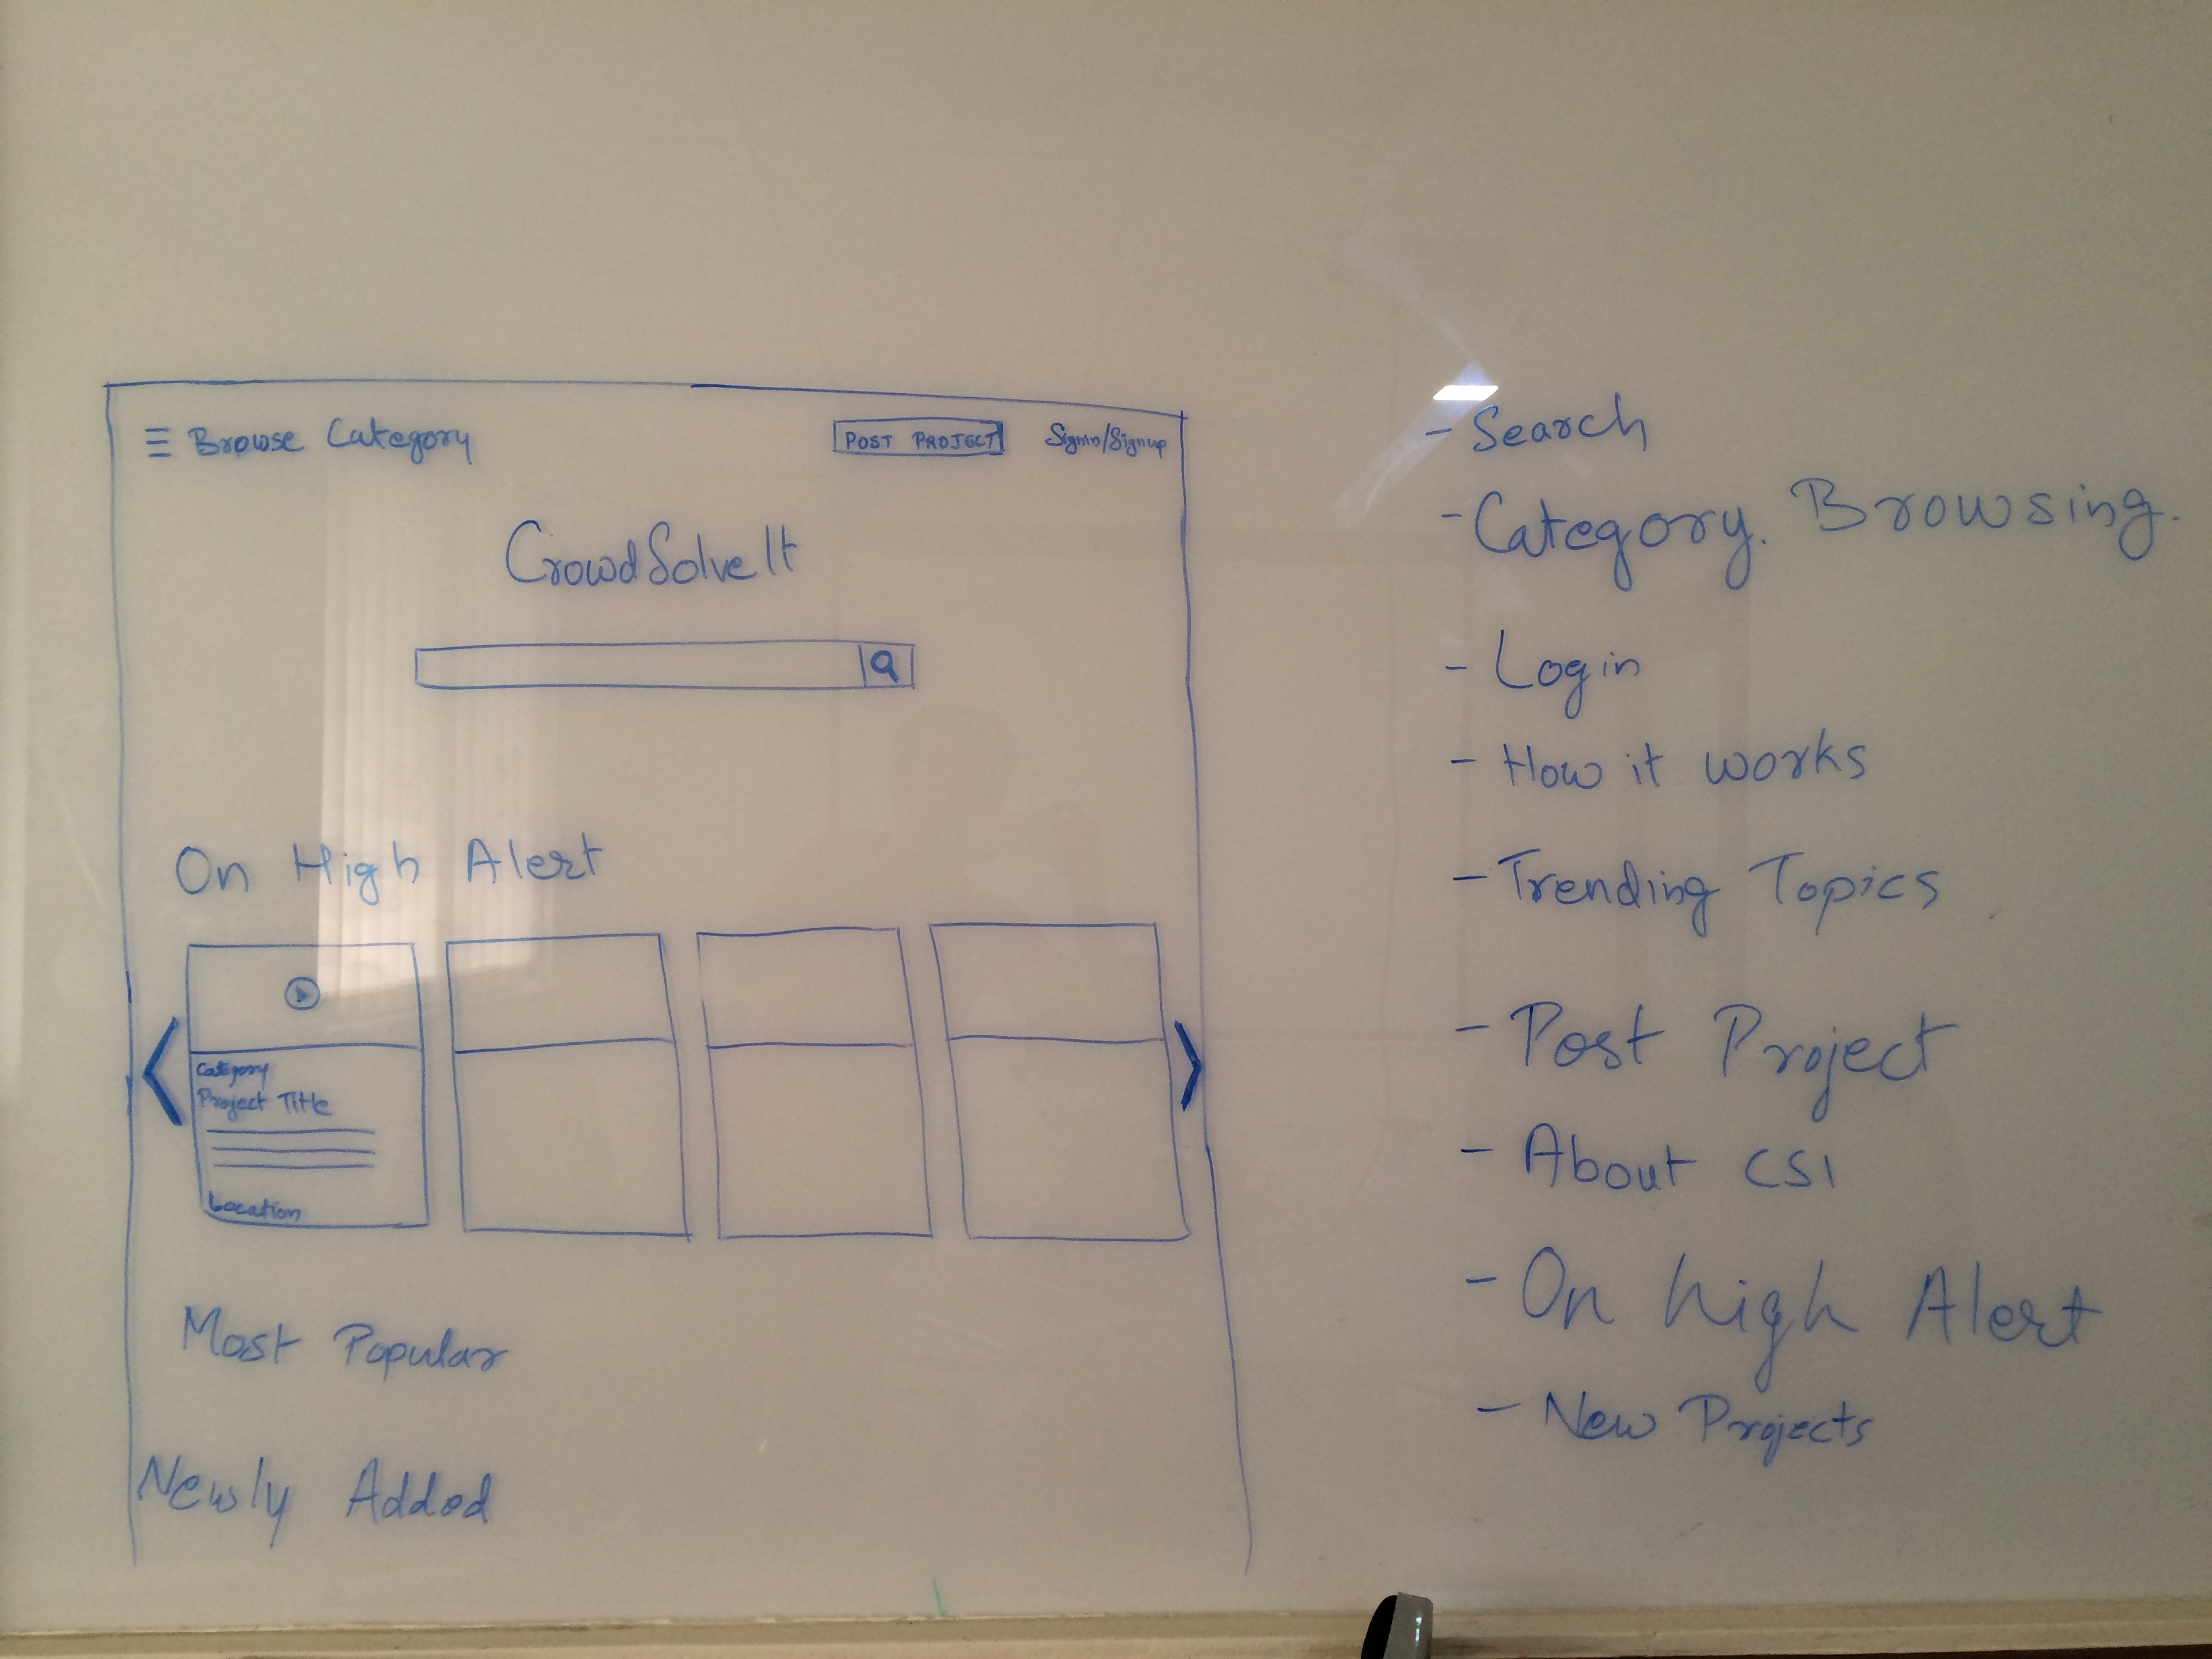 Browse Category
POST PROJECT
Signin/Signup
CrowdSolveIt
On High Alert
Category
Project Title
Location
Most Popular
Newly Added
- Search
- Category. Browsing.
- Login
- How it works
- Trending Topics
- Post Project
- About CSI
- On high Alert
- New Projects